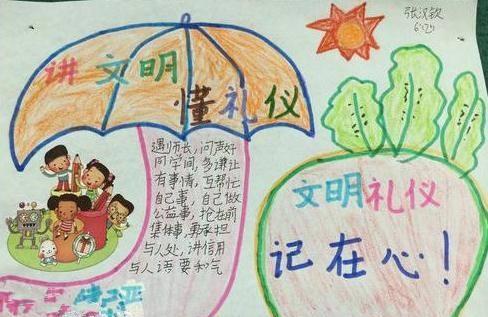 张汉钦
讲文明
懂礼仪
遇师长，问声好
同学间，多谦让
有事情，互帮忙
自己事，自己做
公益事，抢在前
集体事，勇承担
与人处，讲信用
与人语要和气
文明礼仪
记在心！